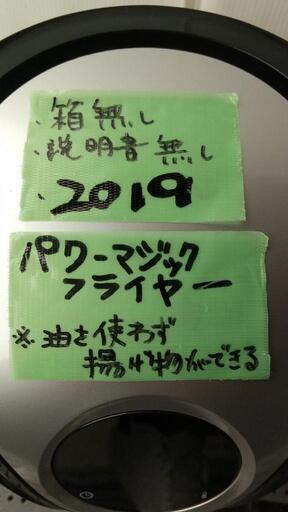 ・箱無し
・説明書無し
・2019
パワーマジック
フライヤー
※油を使わず
揚げ物ができる